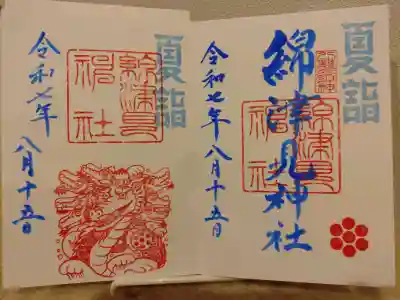 夏詣
綿津見神社
令和七年 八月十五日
夏詣
令和七年
八月十五日